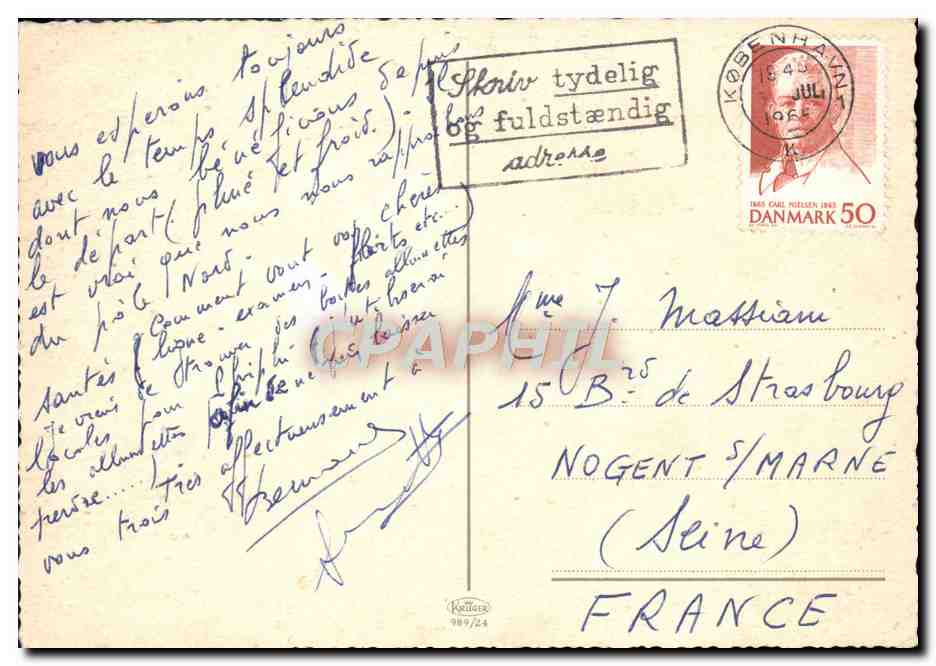 vous esperons toujours
avec le temps splendide
dont nous bénéficions depuis
le départ (pluie et froid). Il
est vrai que nous nous rapprochons
du pôle Nord.
Comment vont vos chères
santés (ligne - examens - flirts etc...)
Je viens de trouver des boites allumettes
locales pour
les allumettes afin de ne pas laisser
perdre.....)
vous trois très affectueusement à
Bernard
Skriv tydelig
og fuldstændig
adresse
KØBENHAVN
JUL
K
1865 CARL NIELSEN 1965
DANMARK 50
CPAPHIL
Mme J. Massiani
15 Brd de Strasbourg
NOGENT S/MARNE
(Seine)
FRANCE
KRÜGER
989/24